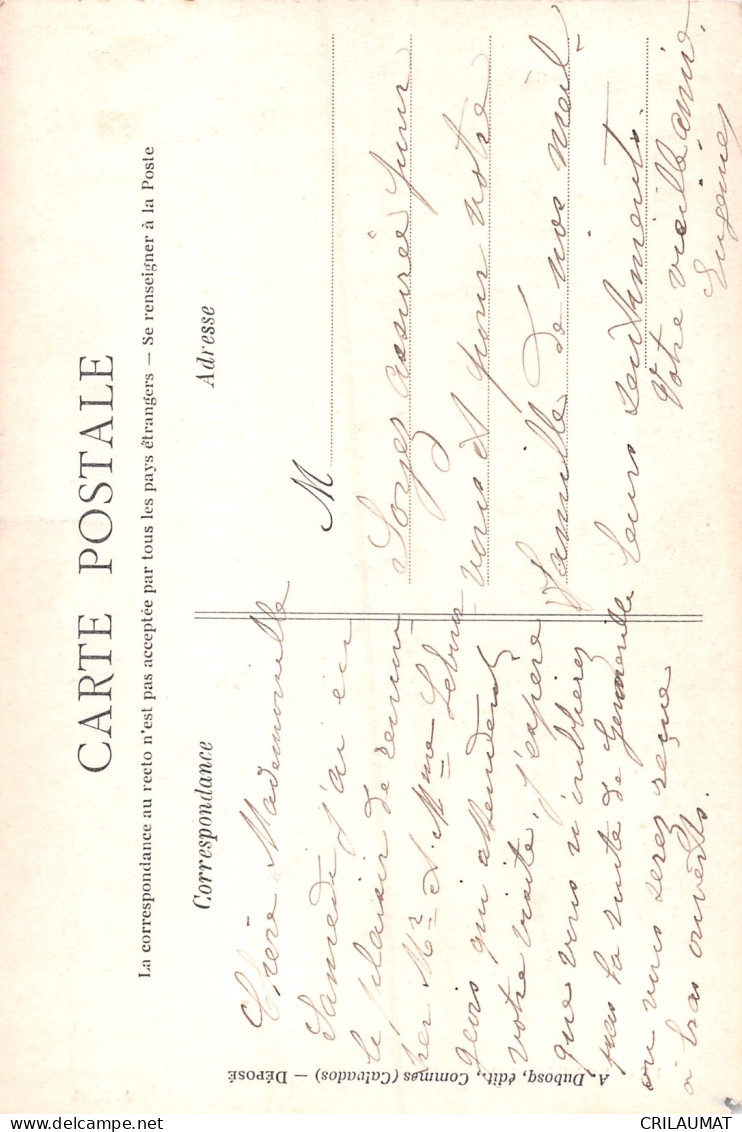 CARTE POSTALE
La correspondance au recto n'est pas acceptée par tous les pays étrangers — Se renseigner à la Poste
Correspondance
Adresse
Chère Mademoiselle
Samedi j'ai eu
le plaisir de
M.r & M.me
geois qui attendent
votre visite, j'espère
que vous n'oublierez
pas la route de
ou vous serez reçue
à bras ouverts.
M
Soyez assurée pour
vous et pour votre
famille de nos meil-
leurs sentiments.
Votre vieille amie.
Eugénie
A. Dubosq, édit., Commes (Calvados) — DÉPOSÉ
CRILAUMAT